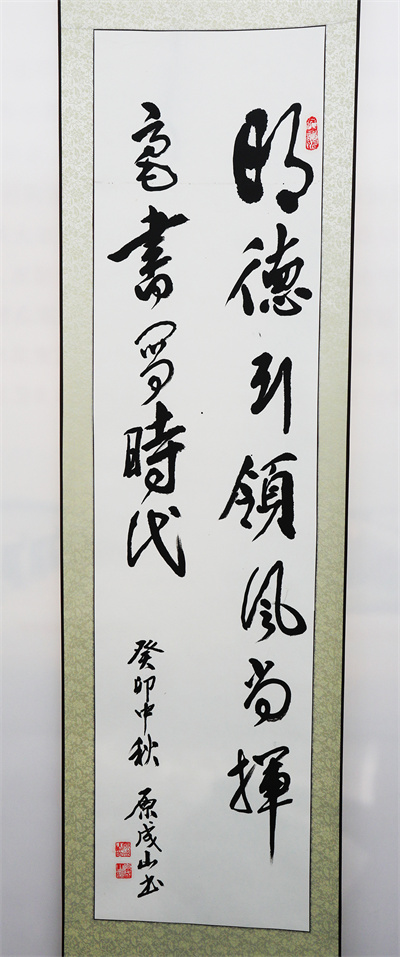 明德引領风尚揮
毫書写時代
癸卯中秋 原成山书